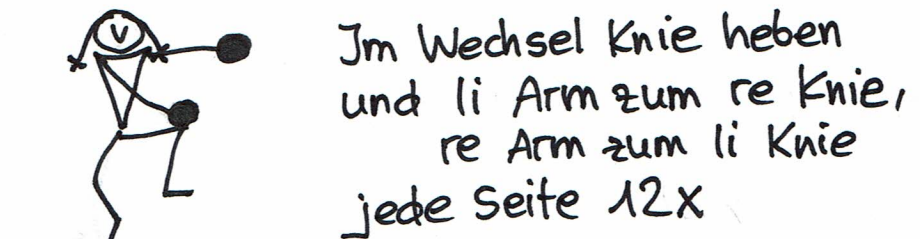 Im Wechsel Knie heben
und li Arm zum re Knie,
re Arm zum li Knie
jede Seite 12x